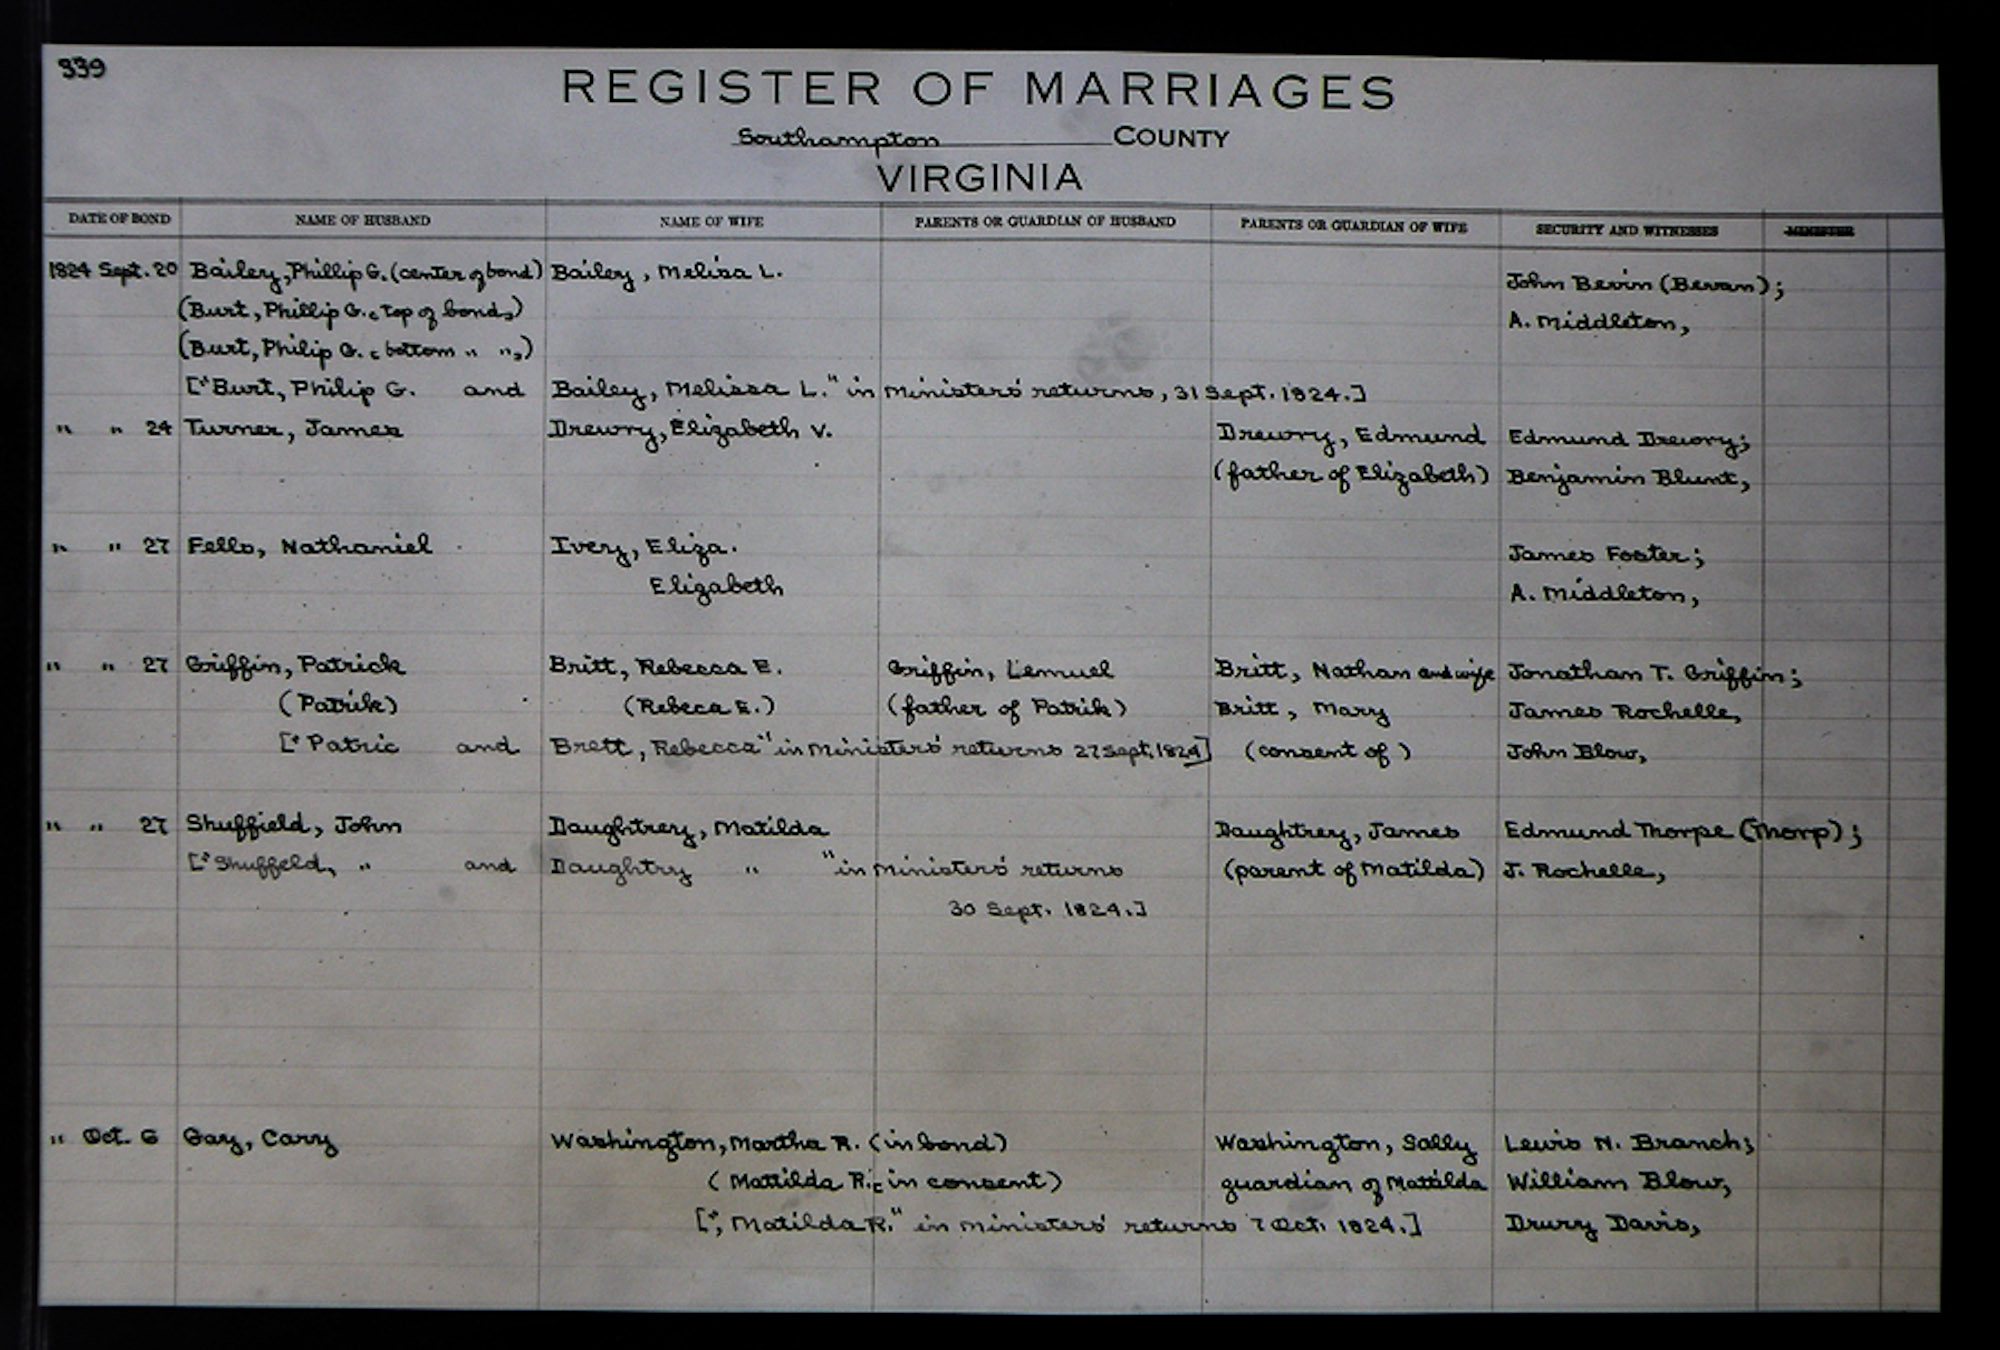 339
REGISTER OF MARRIAGES
Southampton COUNTY
VIRGINIA
DATE OF BOND NAME OF HUSBAND NAME OF WIFE PARENTS OR GUARDIAN OF HUSBAND PARENTS OR GUARDIAN OF WIFE SECURITY AND WITNESSES MINISTER
1824 Sept. 20 Bailey, Phillip G. (center of bond) Bailey, Melisa L. John Bevin (Bevan);
(Burt, Phillip G. c top of bond,) A. Middleton,
(Burt, Philip G. c bottom " ",)
["Burt, Philip G. and Bailey, Melissa L." in Ministers' returns, 31 Sept. 1824.]
" " 24 Turner, James Drewry, Elizabeth V. Drewry, Edmund Edmund Drewry;
(father of Elizabeth) Benjamin Blunt,
" " 27 Fells, Nathaniel Ivey, Eliza. James Foster;
Elizabeth A. Middleton,
" " 27 Griffin, Patrick Britt, Rebecca E. Griffin, Lemuel Britt, Nathan and wife Jonathan T. Griffin;
(Patrik) (Rebeca E.) (father of Patrik) Britt, Mary James Rochelle,
[" Patric and Brett, Rebecca" in Ministers' returns 27 Sept. 1824] (consent of) John Blow,
" " 27 Shuffield, John Daughtrey, Matilda Daughtrey, James Edmund Thorpe (Thorp);
["Shuffeld, " and Daughtry " " in Ministers' returns (parent of Matilda) J. Rochelle,
30 Sept. 1824.]
" Oct. 6 Gay, Cary Washington, Martha R. (in bond) Washington, Sally Lewis N. Branch;
(Mattilda R. c in consent) guardian of Mattilda William Blow,
[", Matilda R." in Ministers' returns 7 Oct. 1824.] Drury Davis,